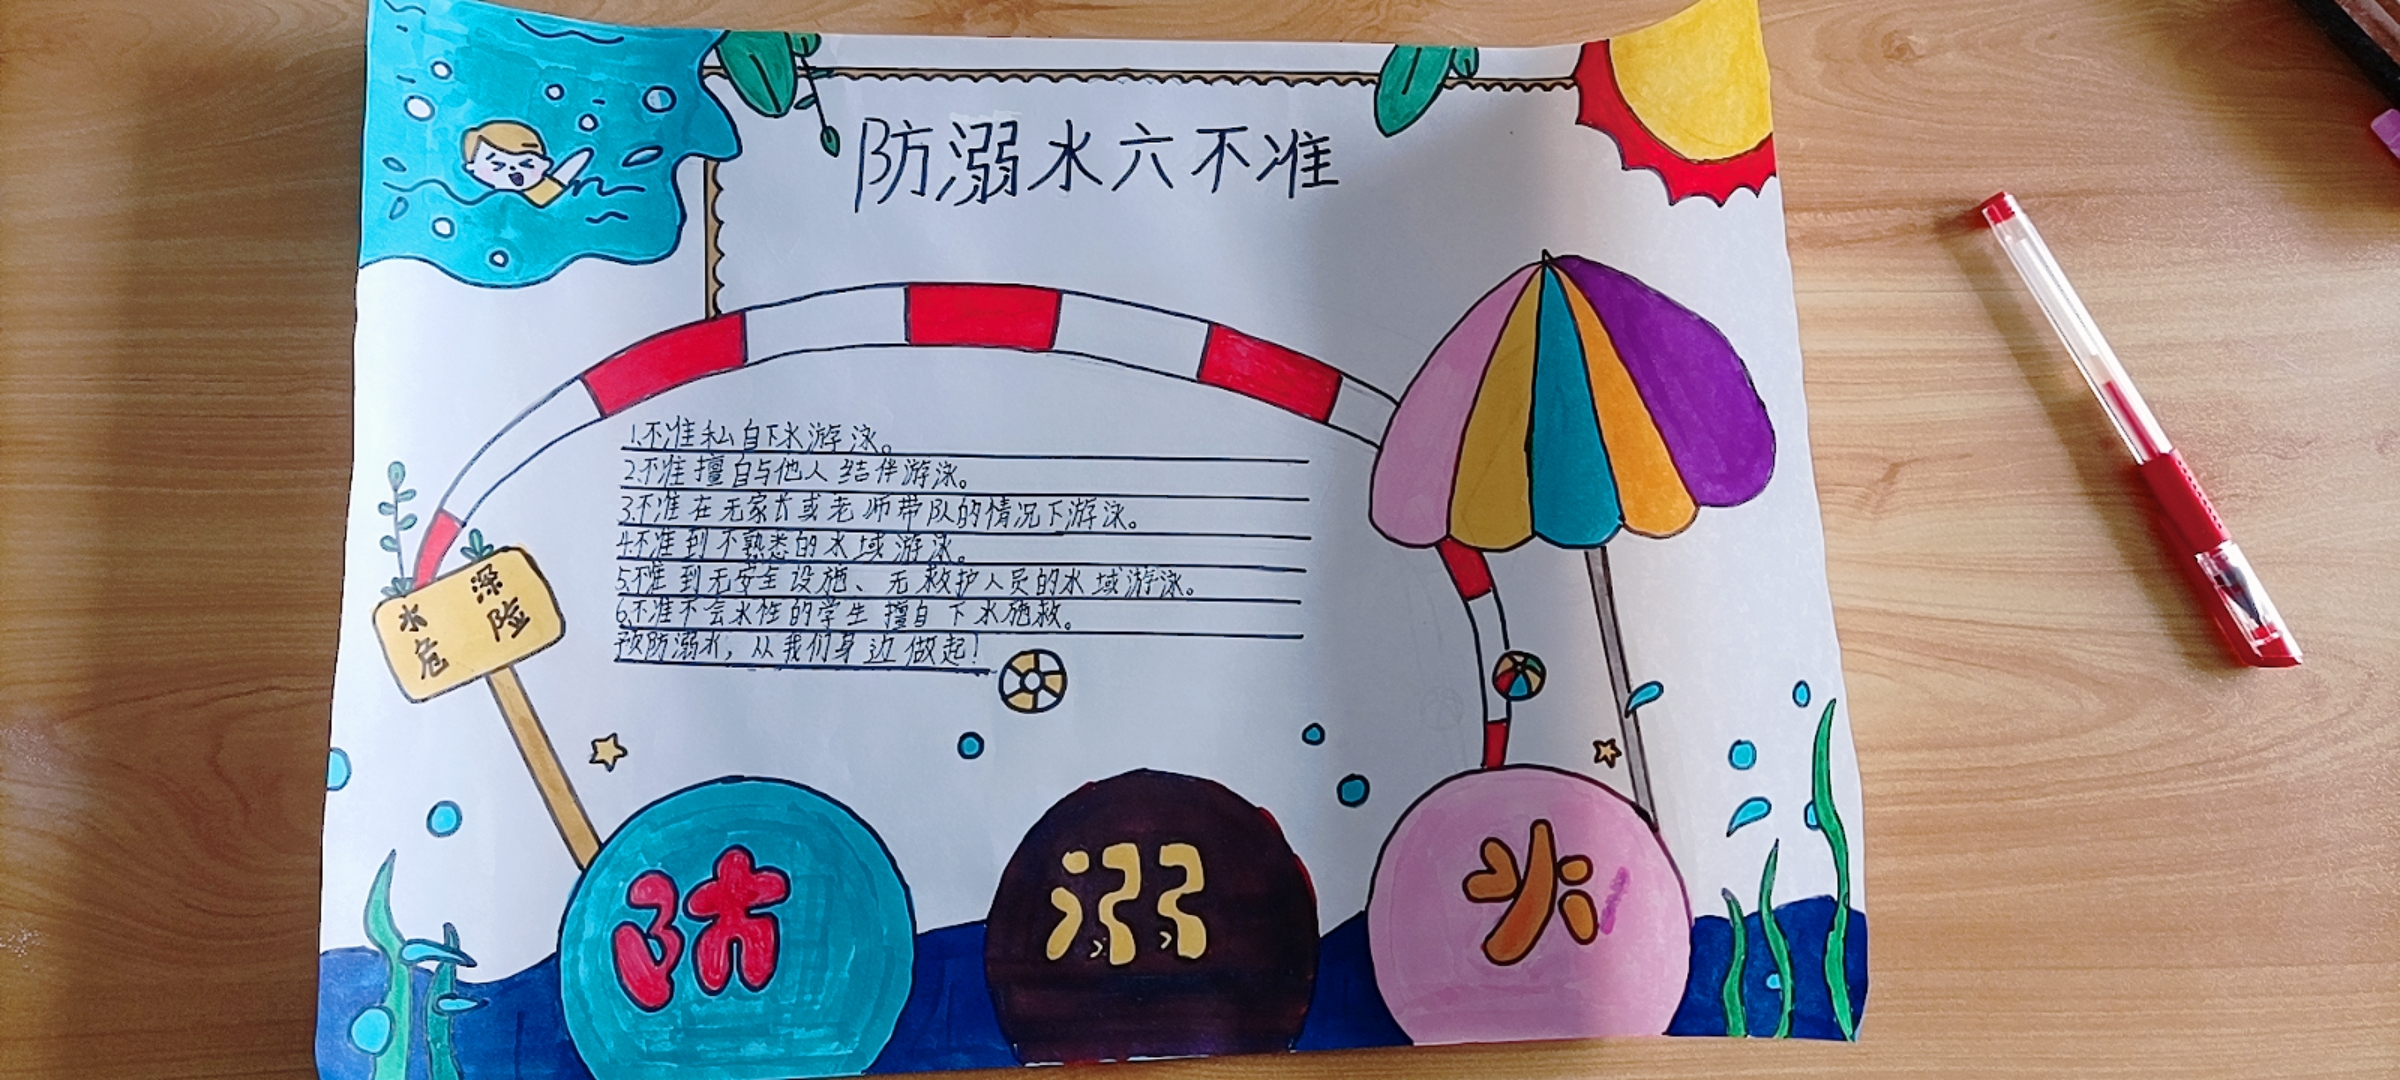 防溺水六不准
1.不准私自下水游泳。
2.不准擅自与他人结伴游泳。
3.不准在无家长或老师带队的情况下游泳。
4.不准到不熟悉的水域游泳。
5.不准到无安全设施、无救护人员的水域游泳。
6.不准不会水性的学生擅自下水施救。
预防溺水，从我们身边做起！
水深
危险
防溺水